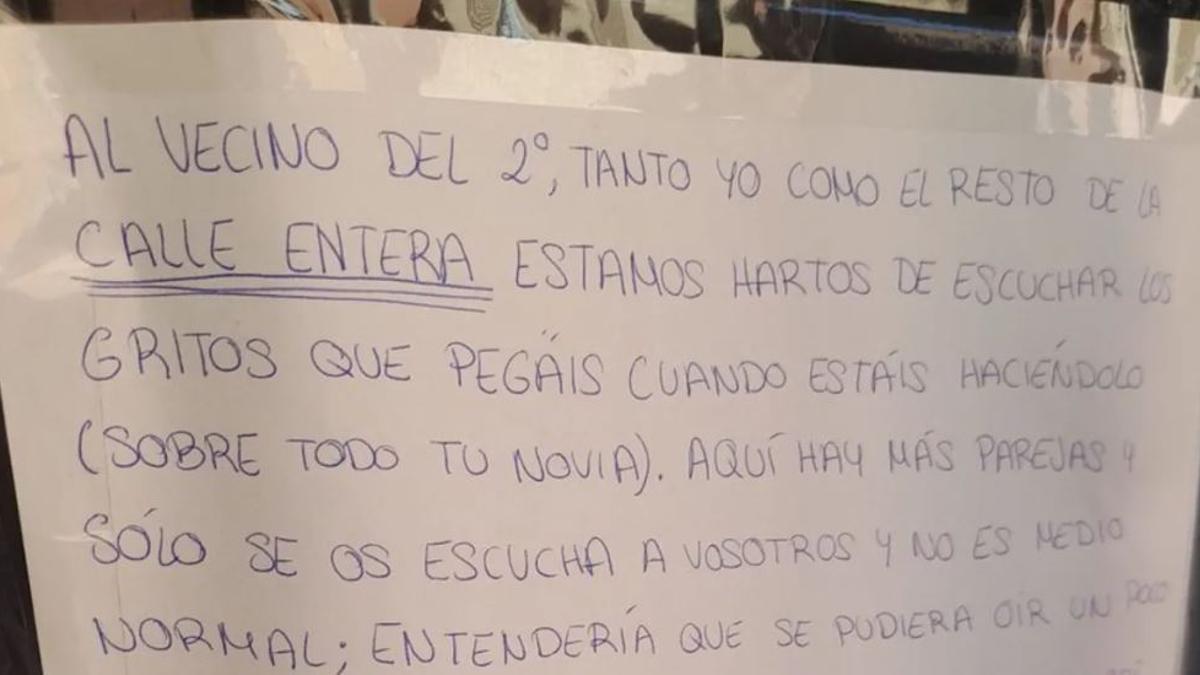 AL VECINO DEL 2º, TANTO YO COMO EL RESTO DE LA
CALLE ENTERA ESTAMOS HARTOS DE ESCUCHAR LOS
GRITOS QUE PEGÁIS CUANDO ESTÁIS HACIÉNDOLO
(SOBRE TODO TU NOVIA). AQUÍ HAY MÁS PAREJAS Y
SÓLO SE OS ESCUCHA A VOSOTROS Y NO ES MEDIO
NORMAL; ENTENDERÍA QUE SE PUDIERA OIR UN POCO